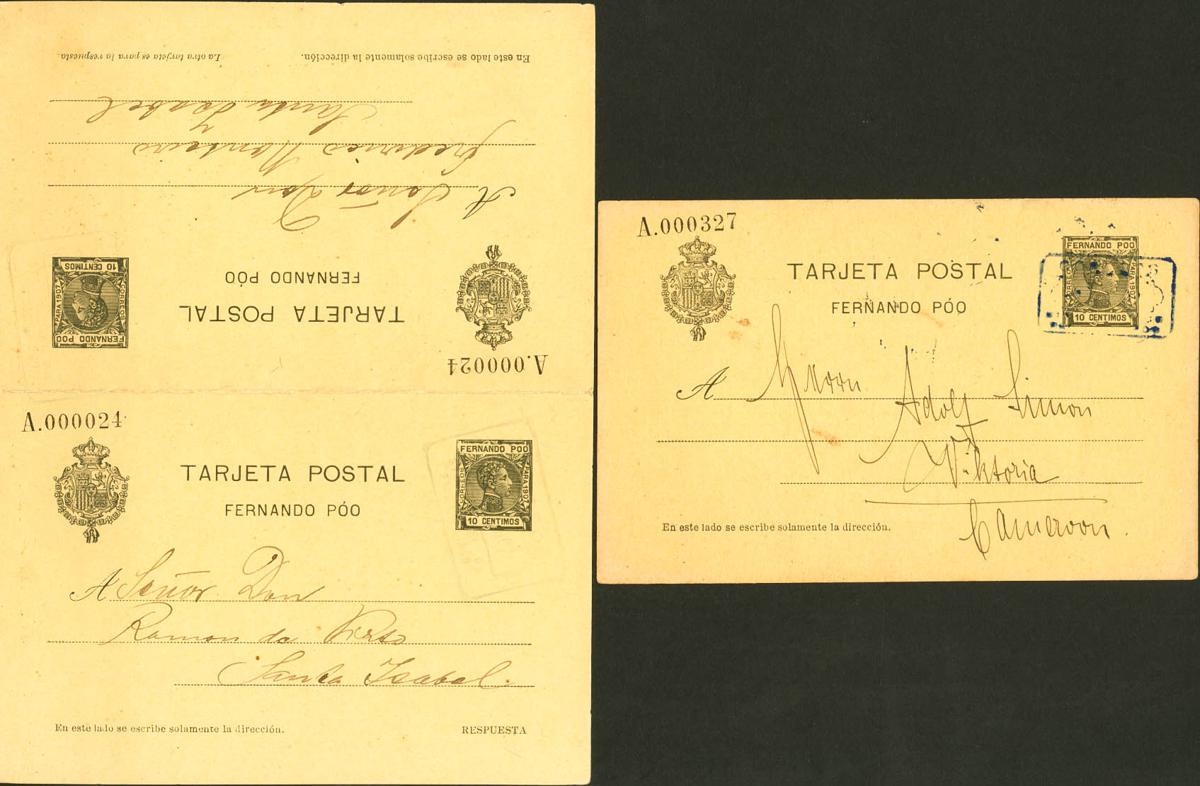 A.000024
TARJETA POSTAL
FERNANDO PÓO
FERNANDO POO
PARA 1907
10 CENTIMOS
A Señor Don
Federico Monteiro
Santa Isabel
En este lado se escribe solamente la dirección.
La otra tarjeta es para la respuesta.
A.000024
TARJETA POSTAL
FERNANDO PÓO
FERNANDO POO
CORREOS
PARA 1907
10 CENTIMOS
A Señor Don
Ramon de
Santa Isabel.
En este lado se escribe solamente la dirección.
RESPUESTA
A.000327
TARJETA POSTAL
FERNANDO PÓO
FERNANDO POO
10 CENTIMOS
A Herrn
Adolf Simon
Viktoria
Cameroon.
En este lado se escribe solamente la dirección.